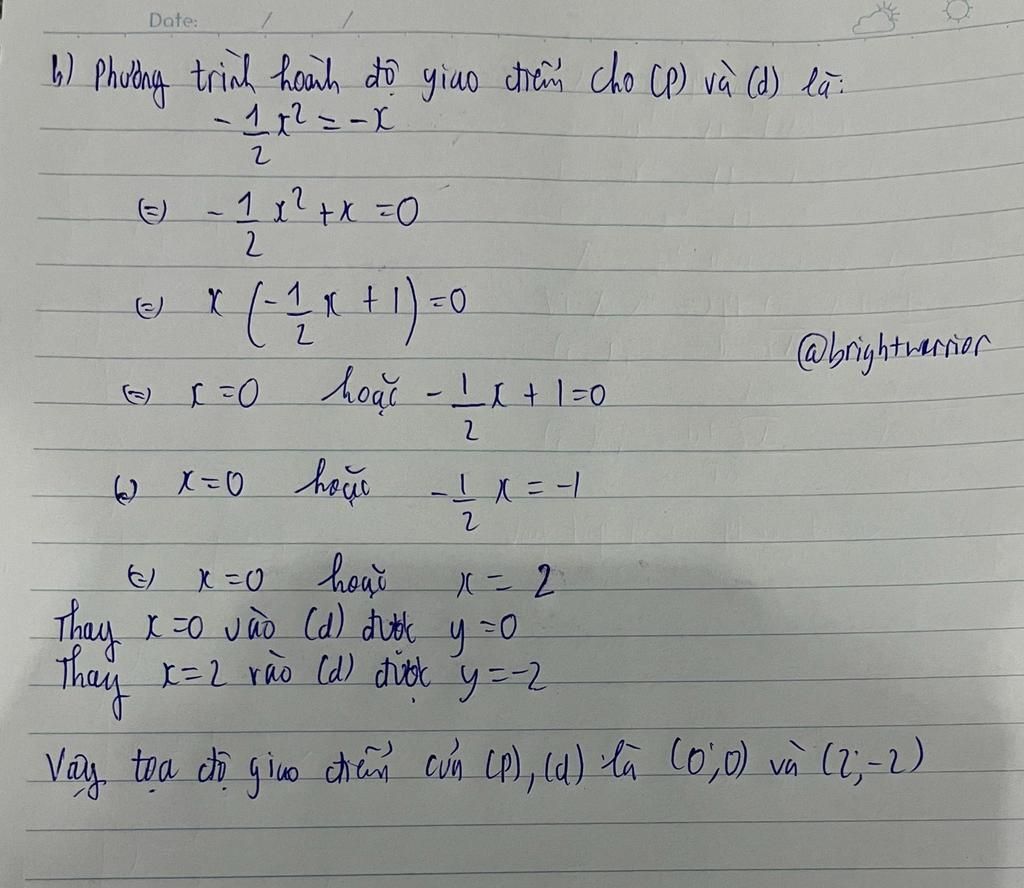 Date: / /
b) Phương trình hoành độ giao điểm cho (P) và (d) là:
-1/2 x² = -x
(=) -1/2 x² + x = 0
(=) x (-1/2 x + 1) = 0
@brightwarrior
(=) x = 0 hoặc -1/2 x + 1 = 0
(=) x = 0 hoặc -1/2 x = -1
(=) x = 0 hoặc x = 2
Thay x = 0 vào (d) được y = 0
Thay x = 2 vào (d) được y = -2
Vậy tọa độ giao điểm của (P), (d) là (0;0) và (2;-2)